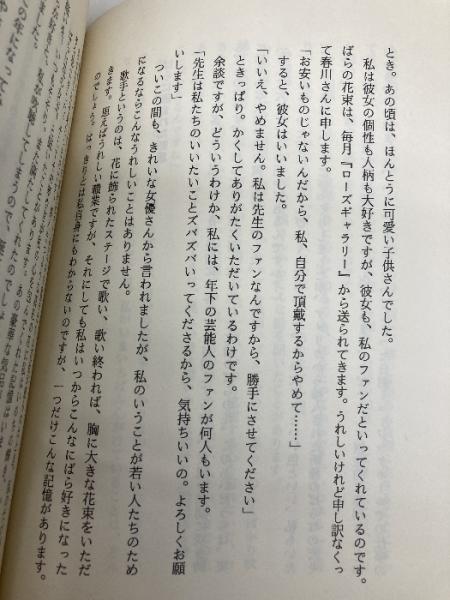 とき。あの頃は、ほんとうに可愛い子供さんでした。
私は彼女の個性も人柄も大好きですが、彼女も、私のファンだといってくれているのです。
ばらの花束は、毎月『ローズギャラリー』から送られてきます。うれしいけれど申し訳なくっ
て春川さんに申します。
「お安いものじゃないんだから、私、自分で頂戴するからやめて……」
すると、彼女はいいました。
「いいえ、やめません。私は先生のファンなんですから、勝手にさせてください」
ときっぱり。かくしてありがたくいただいているわけです。
余談ですが、どういうわけか、私には、年下の芸能人のファンが何人もいます。
「先生は私たちのいいたいことズバズバいってくださるから、気持ちいいの。よろしくお願
いします」
ついこの間も、きれいな女優さんから言われましたが、私のいうことが若い人たちのため
になるならこんなうれしいことはありません。
歌手というのは、花に飾られたステージで歌い、歌い終われば、胸に大きな花束をいただ
きます。思えばうれしい職業ですが、それにしても私はいつからこんなにばら好きになった
のでしょう。はっきりとは私自身にもわからないのですが、一つだけこんな記憶があります。